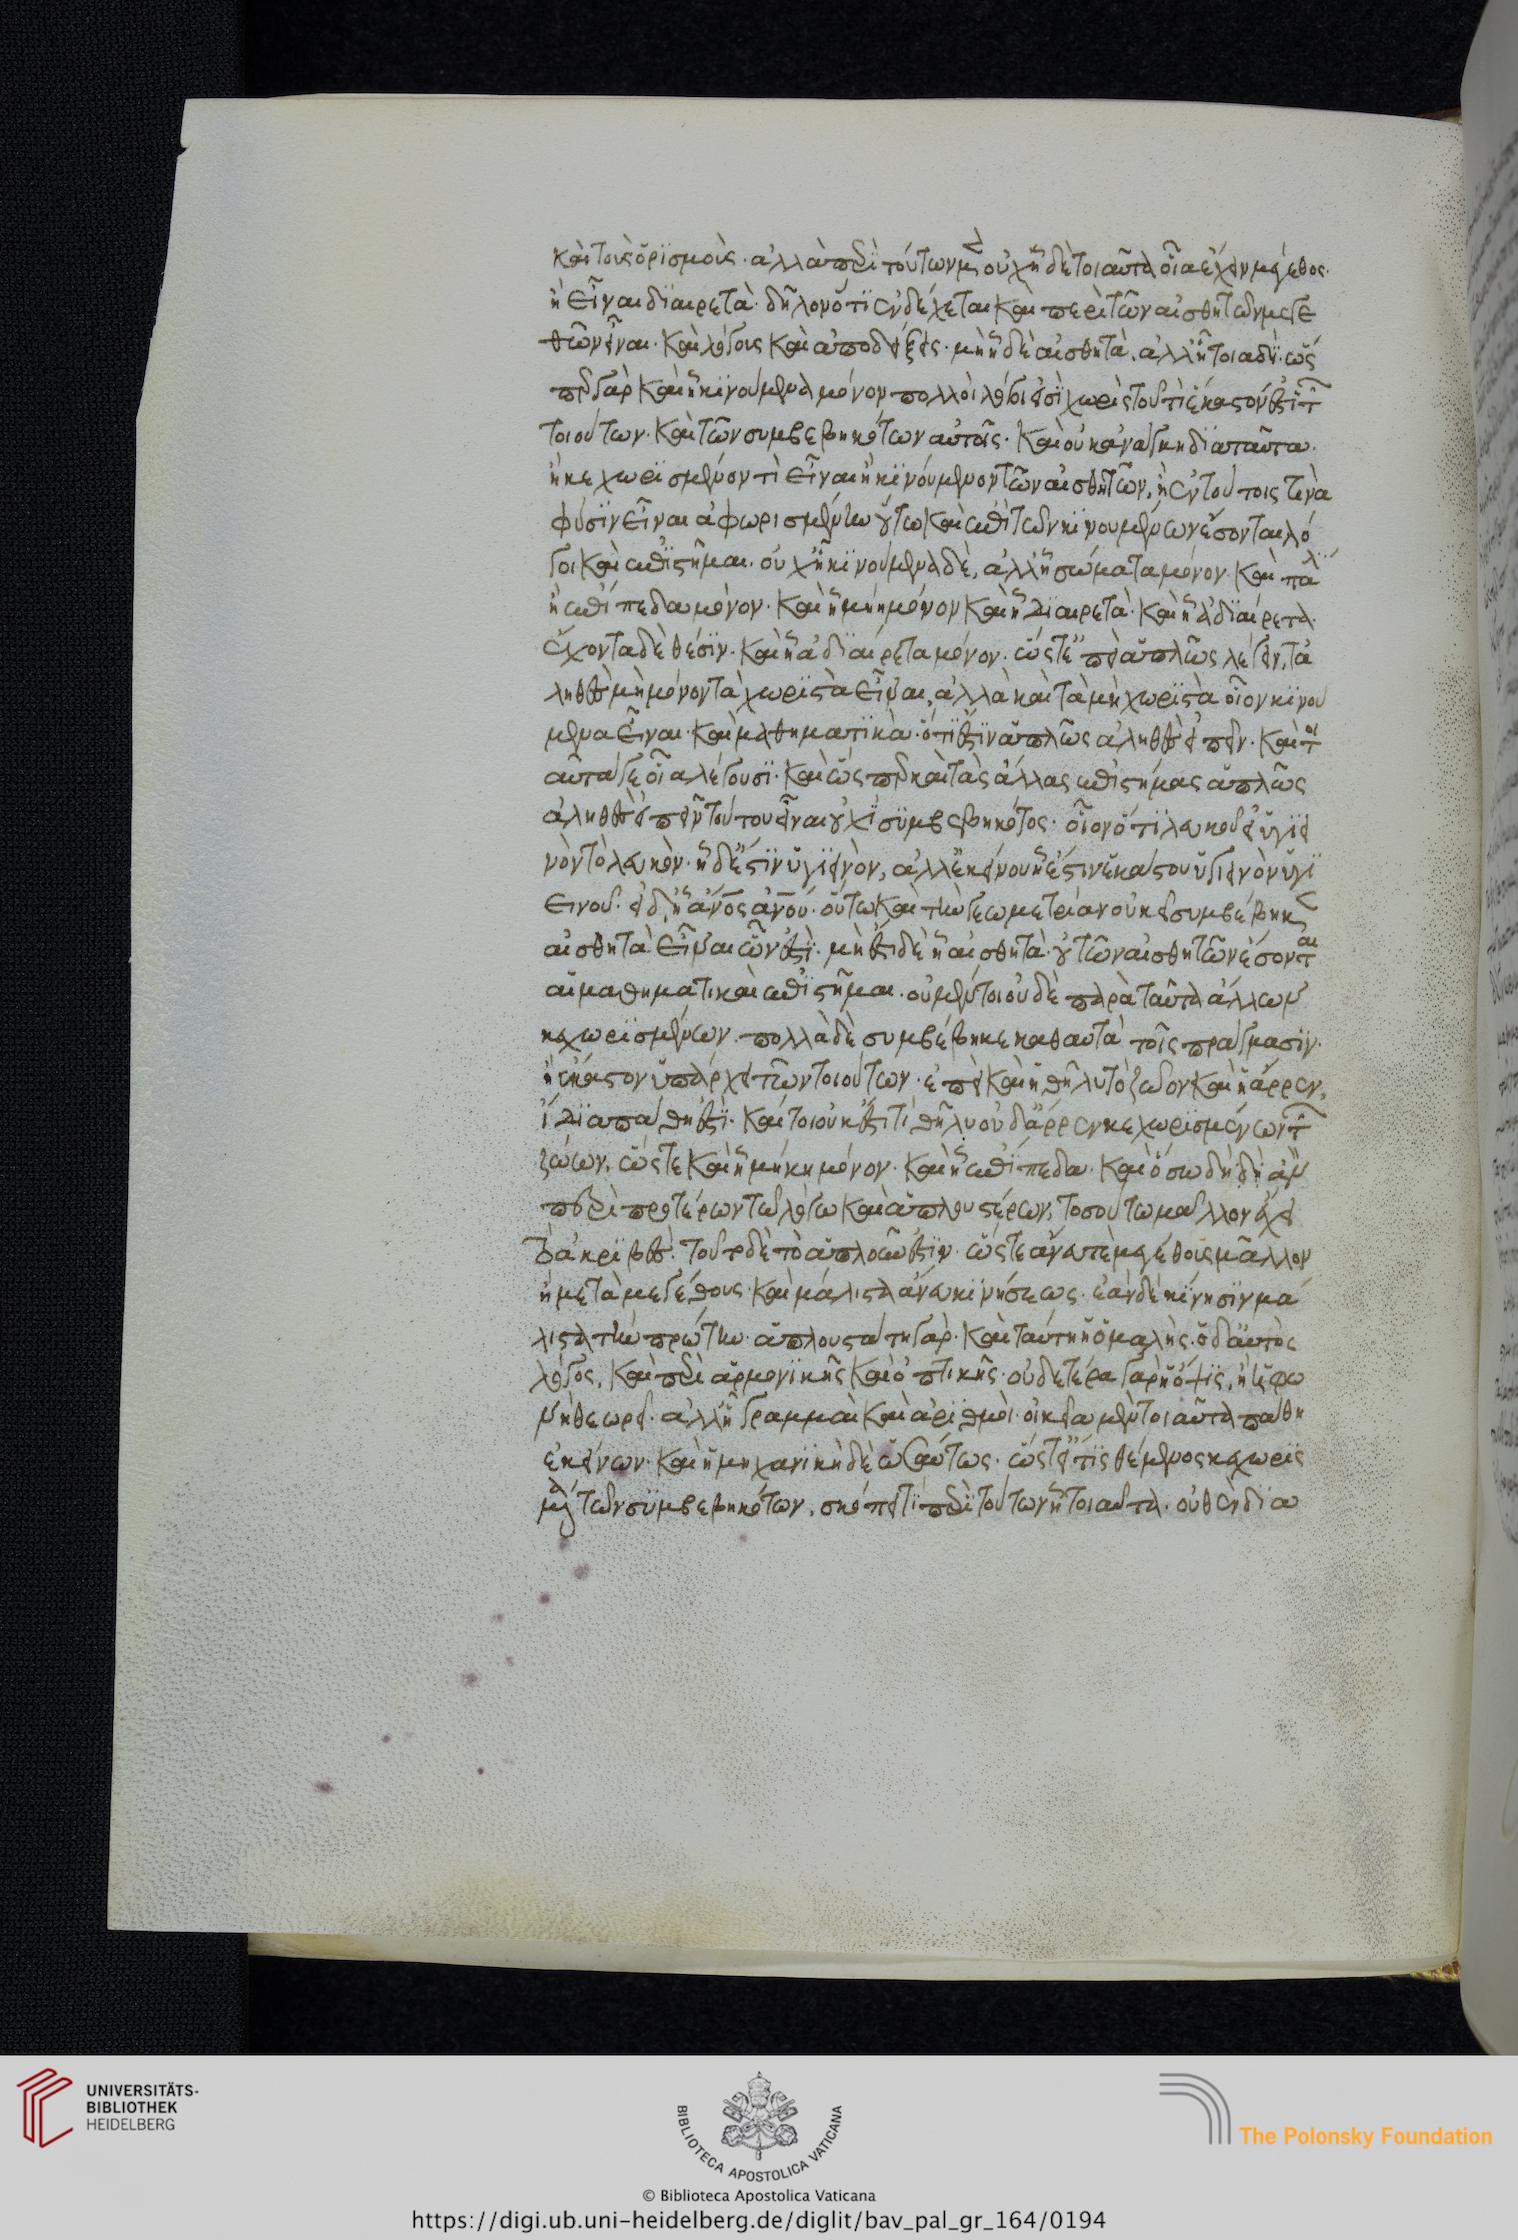 καὶ τοῖς ὁρισμοῖς· ἀλλὰ περὶ τούτων μὲν οὐχ ἧ δὲ τοιαῦτα οἷα ἔχειν μέγεθος·
ἢ εἶναι διαιρετά· δῆλον ὅτι ἐνδέχεται καὶ περὶ τῶν αἰσθητῶν μεγε
θῶν εἶναι· καὶ λόγους καὶ ἀποδείξεις· μὴ ἧ δὲ αἰσθητὰ, ἀλλ' ἧ τοιαδί· ὥς
περ γὰρ καὶ ἧ κινούμενα μόνον πολλοὶ λόγοι εἰσὶ χωρὶς τοῦ τί ἕκαστόν ἐστι τῶν
τοιούτων· καὶ τῶν συμβεβηκότων αὐτοῖς· καὶ οὐκ ἀνάγκη διὰ ταῦτα·
ἢ κεχωρισμένον τὶ εἶναι ἢ κινούμενον τῶν αἰσθητῶν, ἢ ἐν τούτοις τινὰ
φύσιν εἶναι ἀφωρισμένην οὕτω καὶ ἐπὶ τῶν κινουμένων ἔσονται λό
γοι καὶ ἐπιστῆμαι· οὐχ ἧ κινούμενα δὲ, ἀλλ' ἧ σώματα μόνον· καὶ πάλιν
ἧ ἐπίπεδα μόνον· καὶ ἧ μήκη μόνον καὶ ἧ διαιρετά· καὶ ἧ ἀδιαίρετα·
ἔχοντα δὲ θέσιν· καὶ ἧ ἀδιαίρετα μόνον· ὥστε ἐπεὶ ἁπλῶς λέγειν, τἀ
ληθὲς μὴ μόνον τὰ χωριστὰ εἶναι, ἀλλὰ καὶ τὰ μὴ χωριστὰ οἷον κινού
μενα εἶναι· καὶ μαθηματικὰ· ὅτι ἐστὶν ἁπλῶς ἀληθὲς εἰπεῖν· καὶ τοι
αῦτα γε οἷα λέγουσι· καὶ ὥσπερ καὶ τὰς ἄλλας ἐπιστήμας ἁπλῶς
ἀληθὲς εἰπεῖν τούτου εἶναι οὐχὶ συμβεβηκότος· οἷον ὅτι λευκοῦ εἰ ὑγιει
νὸν τὸ λευκόν· ἧ δ' ἔστιν ὑγιεινὸν, ἀλλ' ἐκείνου ἧ ἐστιν ἑκάστου ὑγιεινὸν ὑγι
εινοῦ· εἰ δ' ἧ ἄνος ἀνου· οὕτω καὶ τὴν γεωμετρίαν οὐκ εἰ συμβέβηκε
αἰσθητὰ εἶναι ὧν ἐστι· μὴ ἔστι δὲ ἧ αἰσθητὰ· οὐ τῶν αἰσθητῶν ἔσονται
αἱ μαθηματικαὶ ἐπιστῆμαι· οὐ μέντοι οὐδὲ παρὰ ταῦτα ἄλλων
κεχωρισμένων· πολλὰ δὲ συμβέβηκε καθ' αὑτὰ τοῖς πράγμασιν·
ἧ ἕκαστον ὑπάρχει τῶν τοιούτων· ἐπεὶ καὶ ἧ θῆλυ τὸ ζῶον καὶ ἧ ἄρρεν,
ἴδια πάθη ἐστί· καί τοι οὐκ ἔστι τι θῆλυ οὐδ' ἄρρεν κεχωρισμένων τῶν
ζώων, ὥστε καὶ ἧ μήκη μόνον· καὶ ἧ ἐπίπεδα· καὶ ὅσω δὴ δὴ ἂν
περὶ προτέρων τῶ λόγω καὶ ἁπλουστέρων, τοσούτω μᾶλλον ἔχει
τὸ ἀκριβές· τοῦτο δὲ τὸ ἁπλοῦν ἐστιν· ὥστε ἄνευ τε μεγέθους μᾶλλον
ἢ μετὰ μεγέθους· καὶ μάλιστα ἄνευ κινήσεως· ἐὰν δὲ κίνησιν μά
λιστα τὴν πρώτην· ἁπλουστάτη γάρ· καὶ ταύτη ἡ ὁμαλής· ὁ δ' αὐτὸς
λόγος, καὶ περὶ ἁρμονικῆς καὶ ὀπτικῆς· οὐδετέρα γὰρ ἧ ὄψις, ἢ ἧ φω
νὴ θεωρεῖ· ἀλλ' ἧ γραμμαὶ καὶ ἀριθμοὶ· οἰκεῖα μέντοι αὐτὰ πάθη
ἐκείνων· καὶ ἡ μηχανικὴ δὲ ὡσαύτως· ὥστ' εἴ τις θέμενος κεχωρισ
μένα τῶν συμβεβηκότων, σκοπεῖ τι περὶ τούτων ἧ τοιαῦτα· οὐθὲν διὰ
UNIVERSITÄTS-
BIBLIOTHEK
HEIDELBERG
BIBLIOTECA APOSTOLICA VATICANA
The Polonsky Foundation
© Biblioteca Apostolica Vaticana
https://digi.ub.uni-heidelberg.de/diglit/bav_pal_gr_164/0194